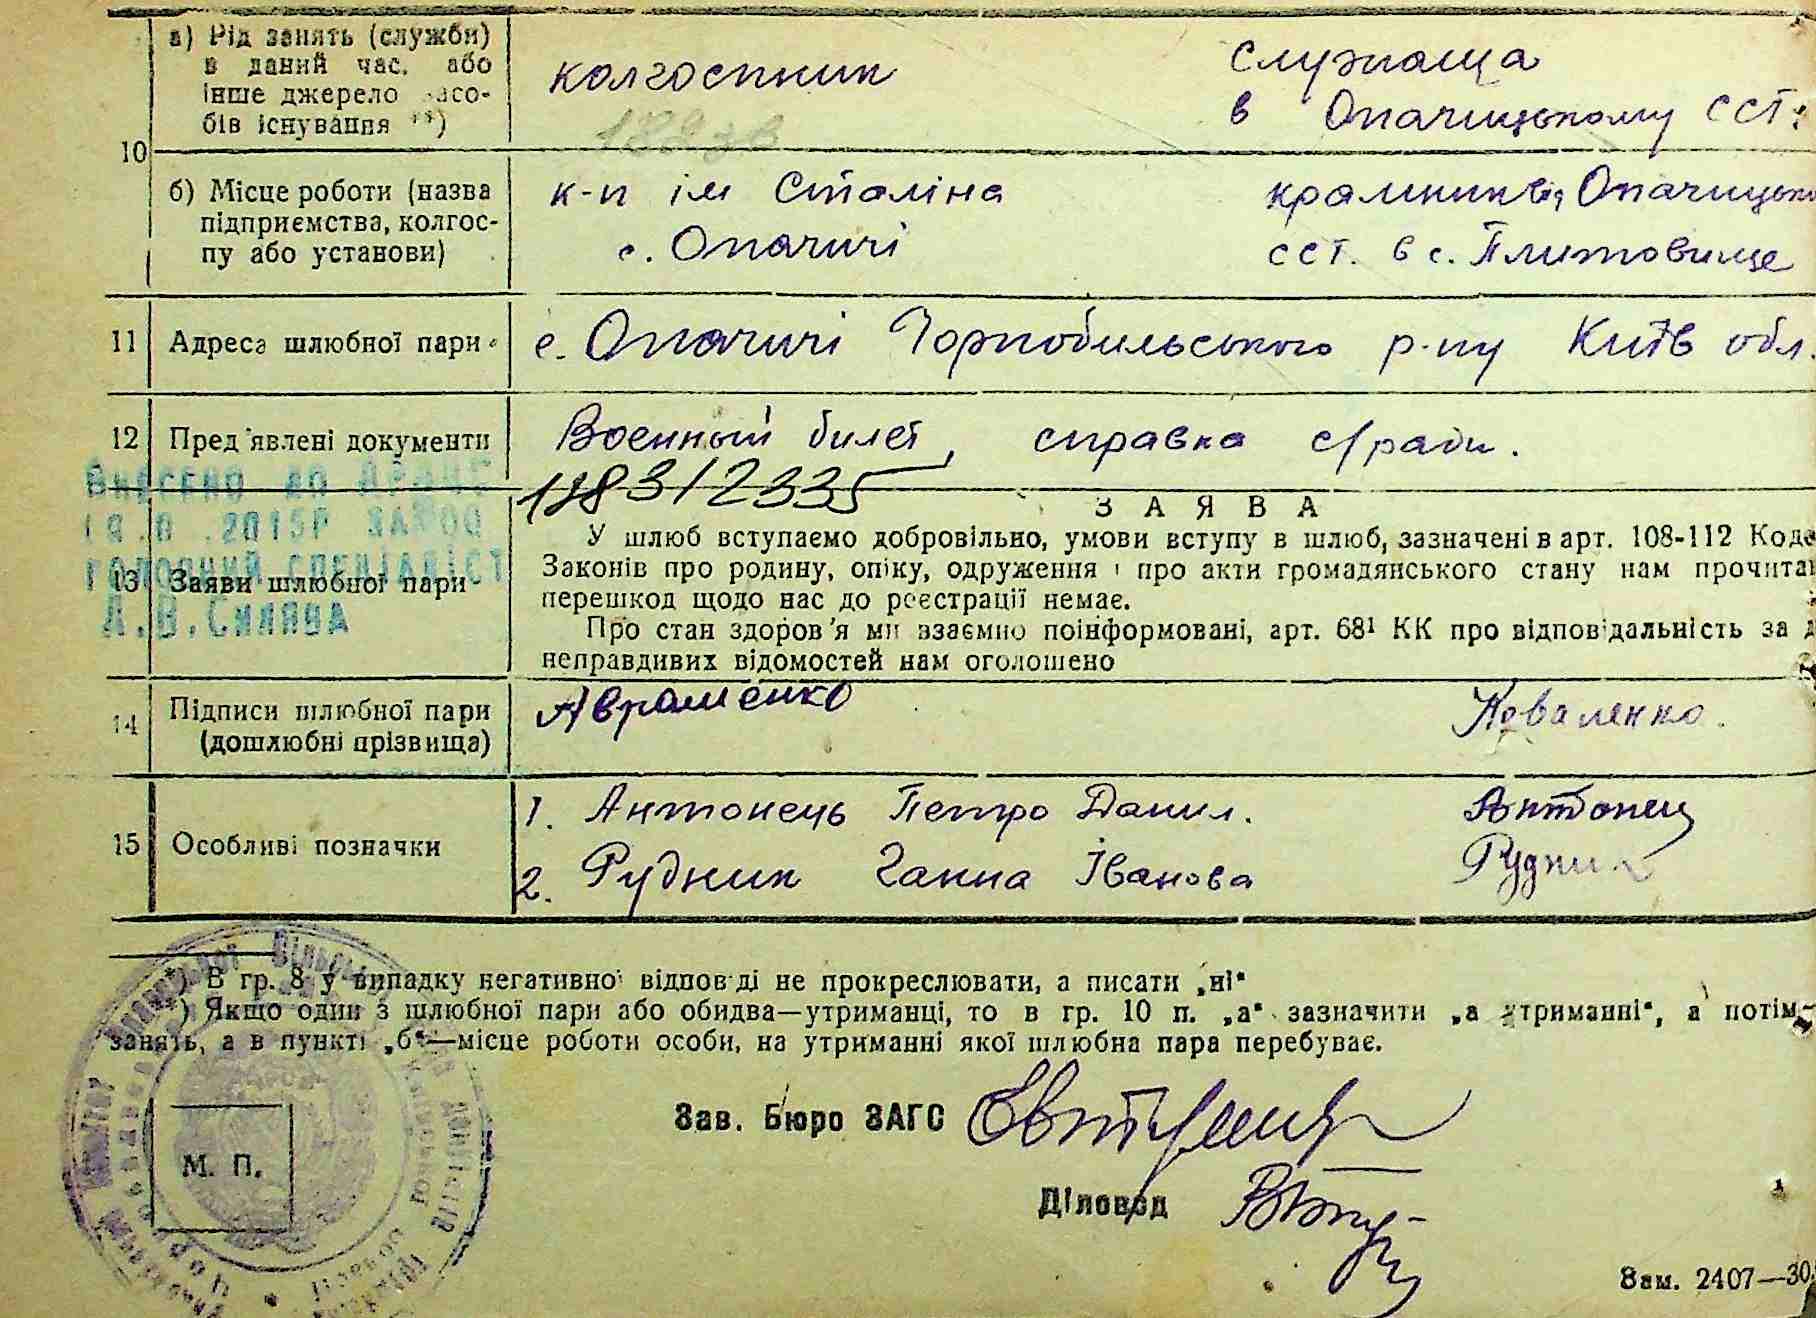 10
а) Рід занять (служби)
в даний час, або
інше джерело засо-
бів існування **)
колгоспник
служаща
в Опачицькому ССТ.
б) Місце роботи (назва
підприємства, колгос-
пу або установи)
к-п ім Сталіна
с. Опачичі
крамник від Опачицьк
ССТ. в с. Плитовище
11 Адреса шлюбної пари
с. Опачичі Чорнобильського р-ну Київ обл.
12 Пред'явлені документи
Военный билет, справка с/ради.
Внесено до
2015р
головний спеціаліст
1283/2335
ЗАЯВА
13 Заяви шлюбної пари
У шлюб вступаємо добровільно, умови вступу в шлюб, зазначені в арт. 108-112 Коде
Законів про родину, опіку, одруження і про акти громадянського стану нам прочита
перешкод щодо нас до реєстрації немає.
Про стан здоров'я ми взаємно поінформовані, арт. 68¹ КК про відповідальність за д
неправдивих відомостей нам оголошено
14 Підписи шлюбної пари
(дошлюбні прізвища)
Авраменко Коваленко.
15 Особливі позначки
1. Антонець Петро Данил. Антонец
2. Рудник Ганна Іванова Рудник
*) В гр. 8 у випадку негативної відповіді не прокреслювати, а писати „ні“
**) Якщо один з шлюбної пари або обидва—утриманці, то в гр. 10 п. „а“ зазначити „а утриманні“, а потім—
занять, а в пункті „б“—місце роботи особи, на утриманні якої шлюбна пара перебуває.
М. П.
Зав. Бюро ЗАГС
Діловод
Зам. 2407—30